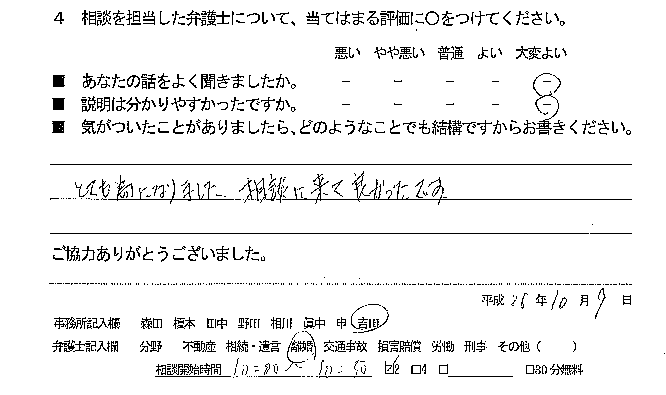 4 相談を担当した弁護士について、当てはまる評価に○をつけてください。
悪い やや悪い 普通 よい 大変よい
■ あなたの話をよく聞きましたか。 − − − − −
■ 説明は分かりやすかったですか。 − − − − −
■ 気がついたことがありましたら、どのようなことでも結構ですからお書きください。
とても になりました 相談に来て良かったです
ご協力ありがとうございました。
平成 26 年 10 月 9 日
事務所記入欄 森田 榎本 田中 野田 相川 眞中 申 吉田
弁護士記入欄 分野 不動産 相続・遺言 離婚 交通事故 損害賠償 労働 刑事 その他（ ）
相談開始時間 10:00 〜 10:50 ☑2 □4 □ □30分無料